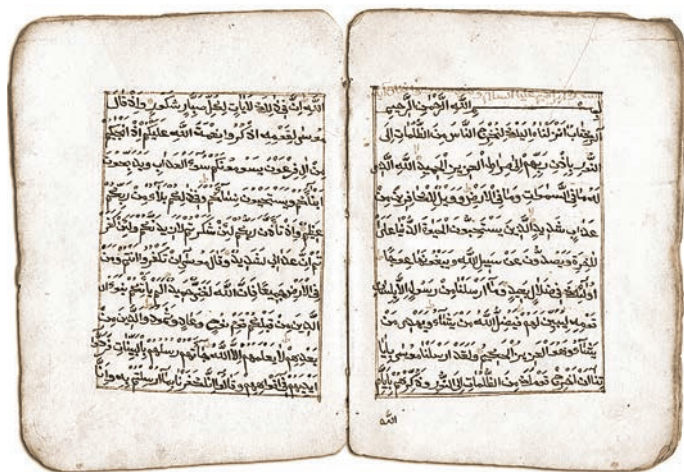 بسم الله الرحمن الرحيم
الر كتاب انزلناه اليك لتخرج الناس من الظلمات الى
النور باذن ربهم الى صراط العزيز الحميد الله الذي
له ما في السموات وما في الارض وويل للكافرين من
عذاب شديد الذين يستحبون الحيوة الدنيا على ا
لاخرة ويصدون عن سبيل الله ويبغونها عوجا
اولئك في ضلال بعيد وما ارسلنا من رسول الا بلسان
قومه ليبين لهم فيضل الله من يشاء ويهدي من
يشاء وهو العزيز الحكيم ولقد ارسلنا موسى بايا
تنا ان اخرج قومك من الظلمات الى النور وذكرهم بايام
الله
الله ان في ذلك لايات لكل صبار شكور واذ قال
موسى لقومه اذكروا نعمة الله عليكم اذ انجيكم
من ال فرعون يسومونكم سوء العذاب ويذبحون
ابناءكم ويستحيون نساءكم وفي ذلكم بلاء من ربكم
عظيم واذ تأذن ربكم لئن شكرتم لازيدنكم ولئن كفر
تم ان عذابي لشديد وقال موسى ان تكفروا انتم ومن
في الارض جميعا فان الله لغني حميد الم يأتكم نبؤا
الذين من قبلكم قوم نوح وعاد وثمود والذين من
بعدهم لا يعلمهم الا الله جاءتهم رسلهم بالبينات فردوا
ايديهم في افواههم وقالوا انا كفرنا بما ارسلتم به وانا